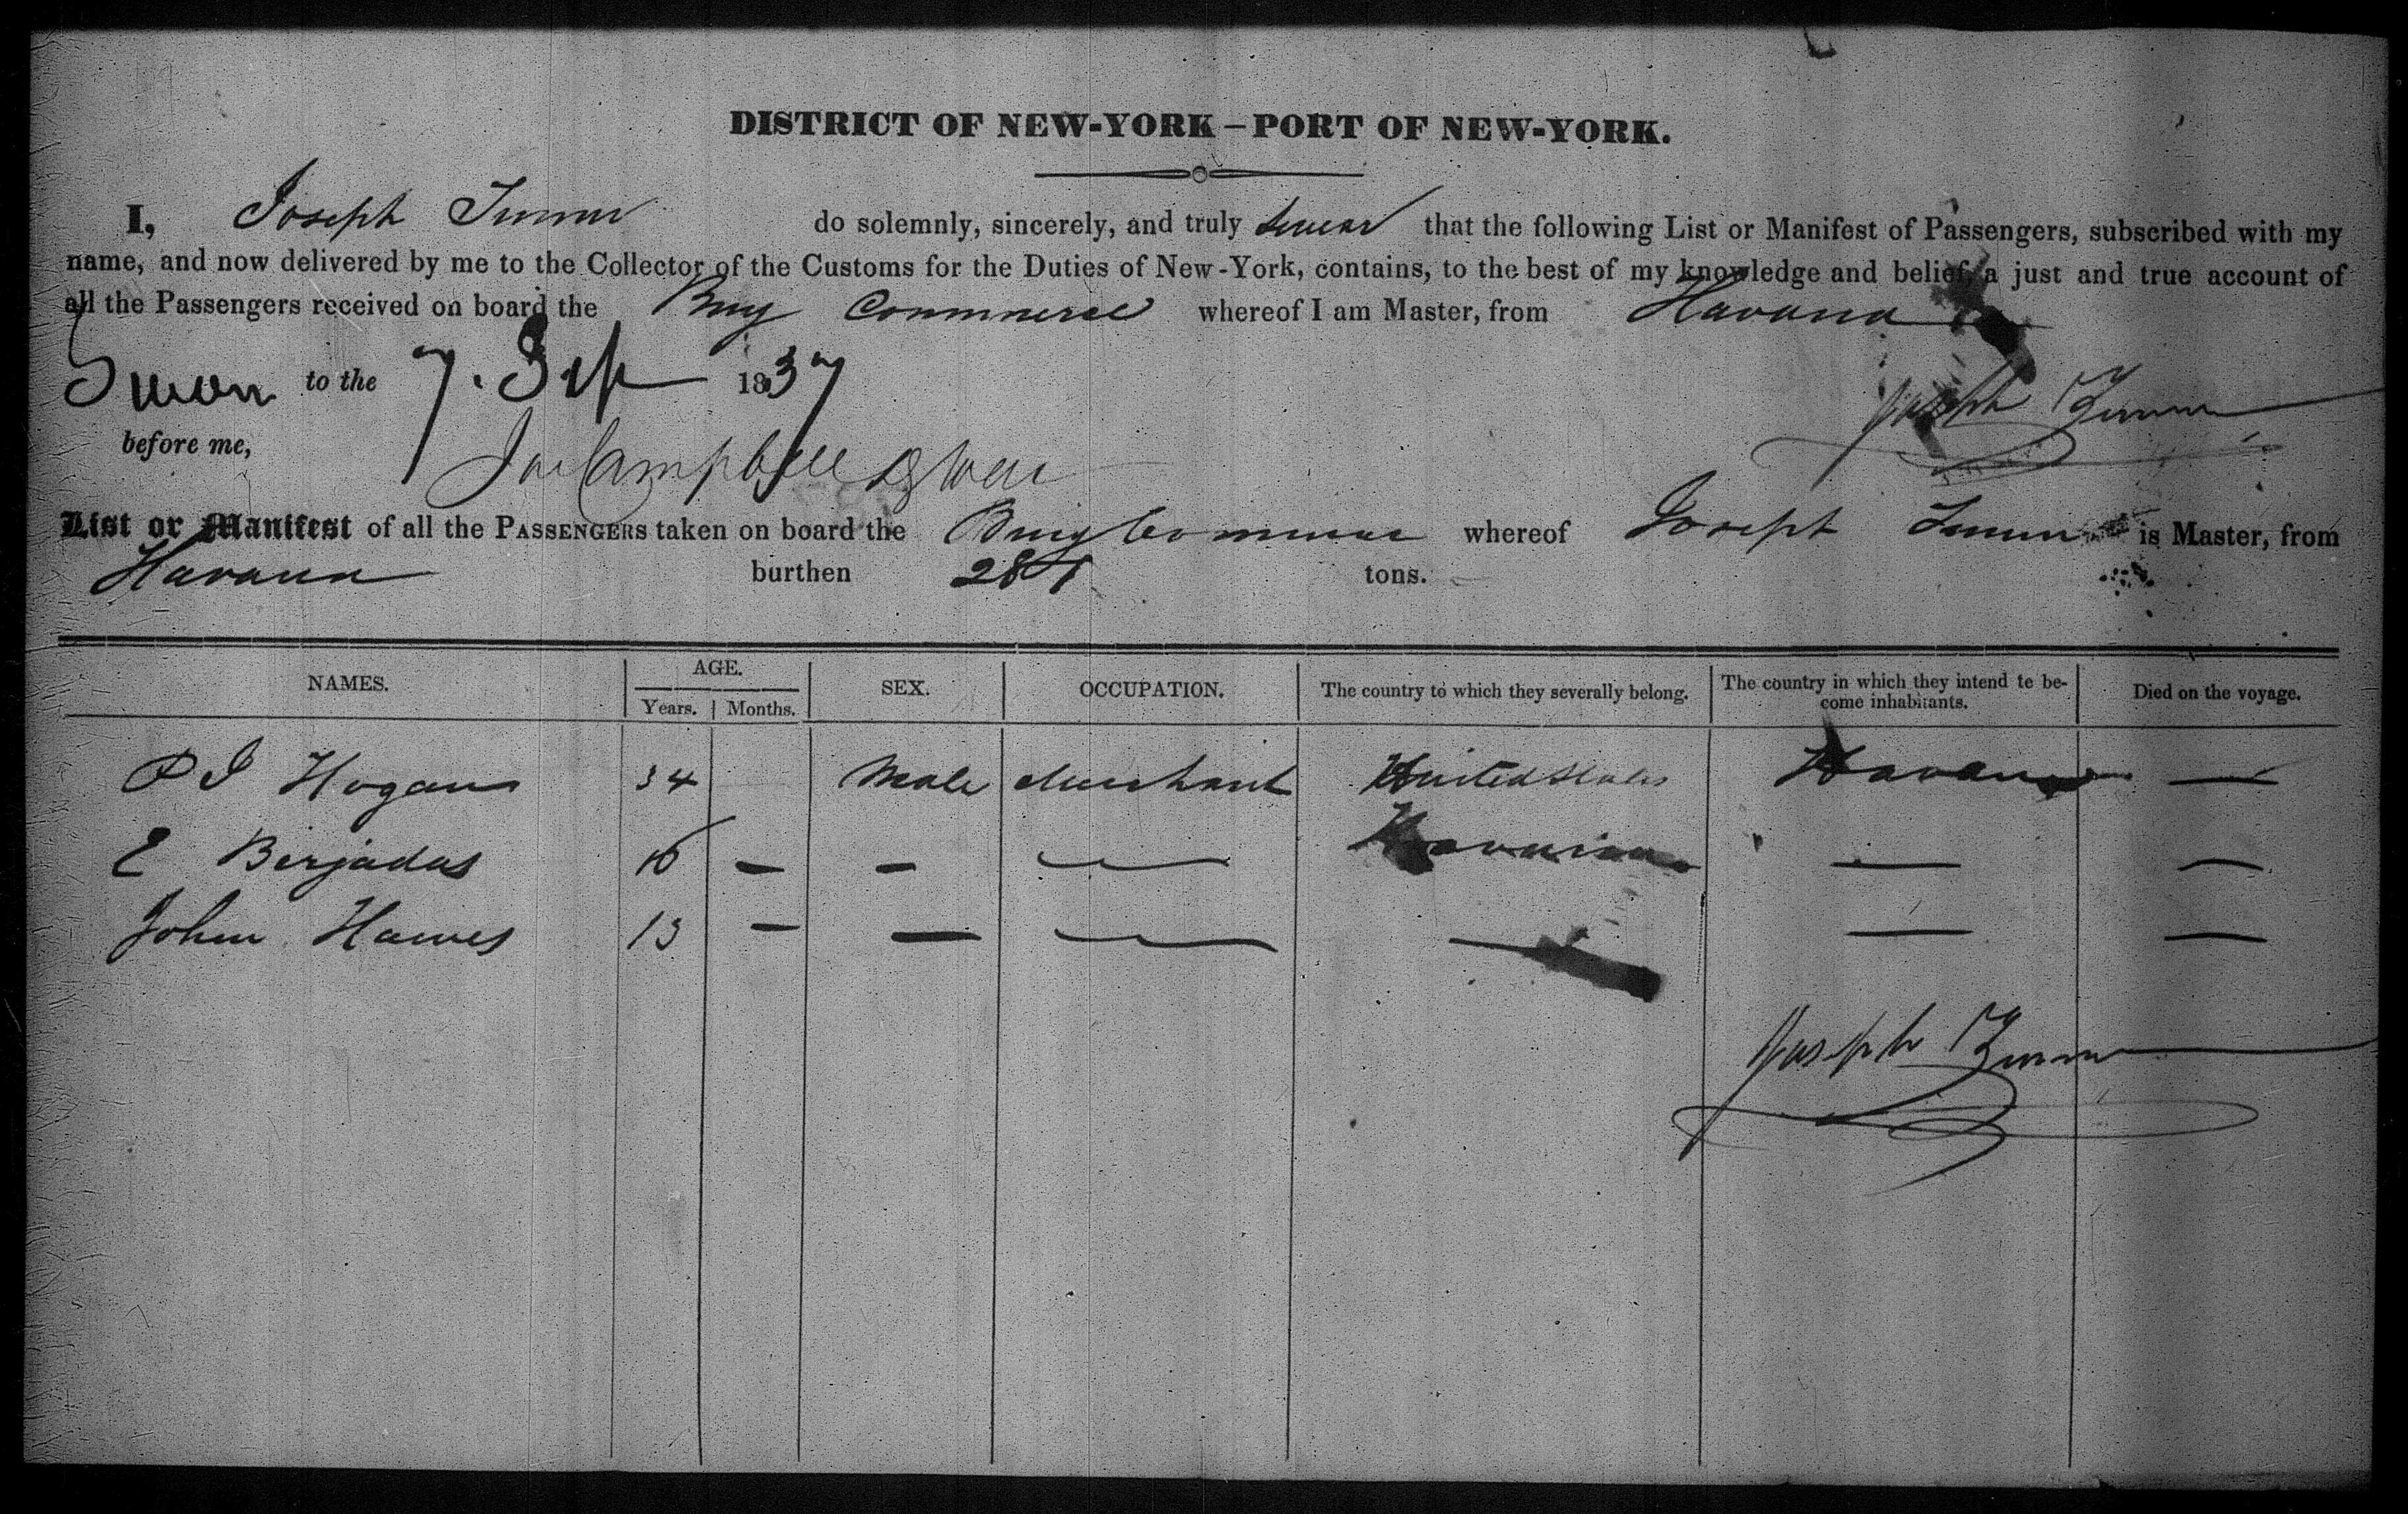 DISTRICT OF NEW-YORK – PORT OF NEW-YORK.
I, Joseph do solemnly, sincerely, and truly swear that the following List or Manifest of Passengers, subscribed with my
name, and now delivered by me to the Collector of the Customs for the Duties of New-York, contains, to the best of my knowledge and belief, a just and true account of
all the Passengers received on board the Brig Commerce whereof I am Master, from Havana
Sworn to the 7. Sep 1837 Joseph
before me,
Campbell
List or Manifest of all the PASSENGERS taken on board the Brig Commerce whereof Joseph is Master, from
Havana burthen tons.
NAMES. AGE. SEX. OCCUPATION. The country to which they severally belong. The country in which they intend te be- Died on the voyage.
Years. Months. come inhabitants.
P J Hogan 34 Male Merchant United States Havana —
E Berjadas — — — — —
John Hawes 13 — — — — — —
Joseph